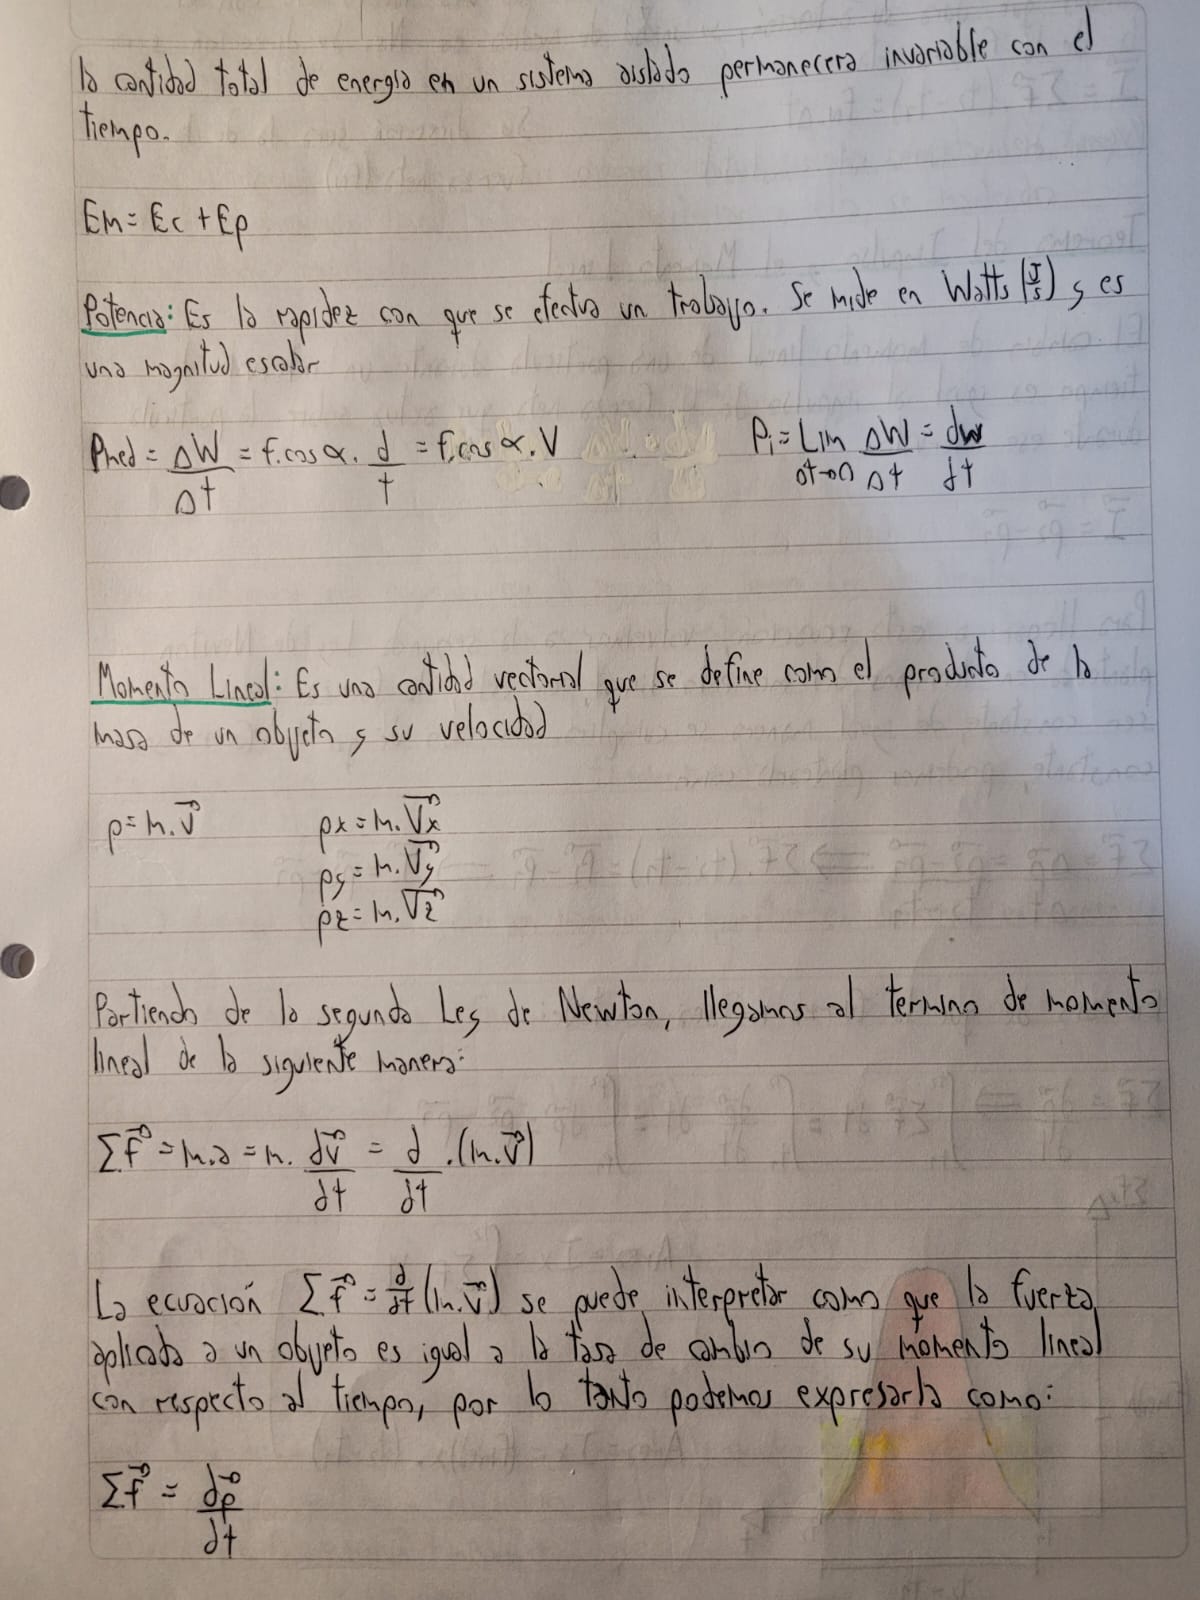 la cantidad total de energia en un sistema aislado permanecera invariable con el
tiempo.
Em = Ec + Ep
Potencia: Es la rapidez con que se efectua un trabajo. Se mide en Watts (J/s) y es
una magnitud escalar
Pmed = ΔW/Δt = f.cos α. d/t = f.cos α. V
Pi = Lim Δt→0 ΔW/Δt = dw/dt
Momento Lineal: Es una cantidad vectorial que se define como el producto de la
masa de un objeto y su velocidad
p = m.v⃗
px = m.Vx⃗
py = m.Vy⃗
pz = m.Vz⃗
Partiendo de la segunda Ley de Newton, llegamos al termino de momento
lineal de la siguiente manera:
Σf⃗ = m.a = m. dv⃗/dt = d/dt .(m.v⃗)
La ecuación Σf⃗ = d/dt (m.v⃗) se puede interpretar como que la fuerza
aplicada a un objeto es igual a la tasa de cambio de su momento lineal
con respecto al tiempo, por lo tanto podemos expresarla como:
Σf⃗ = dp⃗/dt